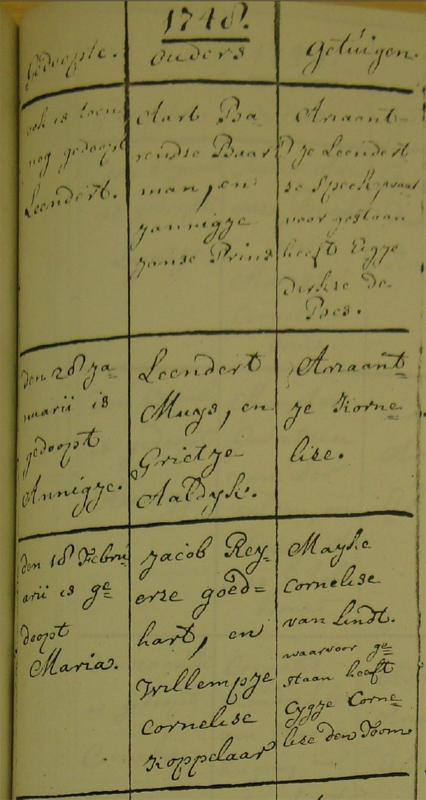 1748.
Gedoopte.
ouders
getuigen.
ook is toen
nog gedoopt
Leendert.
Aart Ba
rendse Buur
man, en
Jannigje
Janse Prins
Ariaant
je Leendert
se Speck, waar
voor gestaan
heeft Eigje
dirkse de
Bres.
den 28 Ja=
nuarii is
gedoopt
Annigje.
Leendert
Muys, en
Grietje
Aaldijk.
Ariaant=
je Korne=
lise.
den 18 Febru
arii is ge=
doopt
Maria.
Jacob Rey=
erse goed=
hart, en
Willempje
Cornelise
Koppelaar
Mayke
Cornelise
van Lindt.
waarvoor ge=
staan heeft
Cygje Corne=
lise den Toom